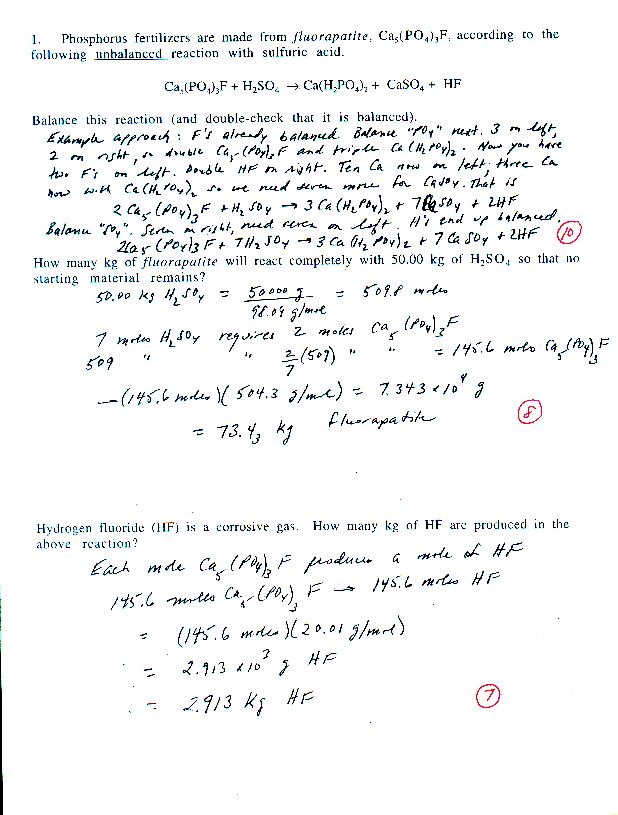 1. Phosphorus fertilizers are made from fluorapatite, Ca₅(PO₄)₃F, according to the
following unbalanced reaction with sulfuric acid.
Ca₅(PO₄)₃F + H₂SO₄ → Ca(H₂PO₄)₂ + CaSO₄ + HF
Balance this reaction (and double-check that it is balanced).
Example approach: F's already balanced. Balance "PO₄" next. 3 on left,
2 on right, so double Ca₅(PO₄)₃F and triple Ca(H₂PO₄)₂. Now you have
two F's on left. Double HF on right. Ten Ca now on left; three Ca
now with Ca(H₂PO₄)₂ so we need seven more for CaSO₄. That is
2 Ca₅(PO₄)₃F + H₂SO₄ → 3 Ca(H₂PO₄)₂ + 7 CaSO₄ + 2HF
Balance "SO₄". Seven on right, need seven on left. H's end up balanced.
2Ca₅(PO₄)₃F + 7H₂SO₄ → 3Ca(H₂PO₄)₂ + 7CaSO₄ + 2HF 10
How many kg of fluorapatite will react completely with 50.00 kg of H₂SO₄ so that no
starting material remains?
50.00 kg H₂SO₄ = 50000 g / 98.09 g/mol = 509.8 moles
7 moles H₂SO₄ requires 2 moles Ca₅(PO₄)₃F
509 " " 2/7 (509) " " = 145.6 moles Ca₅(PO₄)₃F
→ (145.6 moles)(504.3 g/mol) = 7.343 x 10⁴ g
= 73.4₃ kg fluorapatite 8
Hydrogen fluoride (HF) is a corrosive gas. How many kg of HF are produced in the
above reaction?
Each mole Ca₅(PO₄)₃F produces a mole of HF
145.6 moles Ca₅(PO₄)₃F → 145.6 moles HF
= (145.6 moles)(20.01 g/mol)
= 2.913 x 10³ g HF
= 2.913 kg HF 7